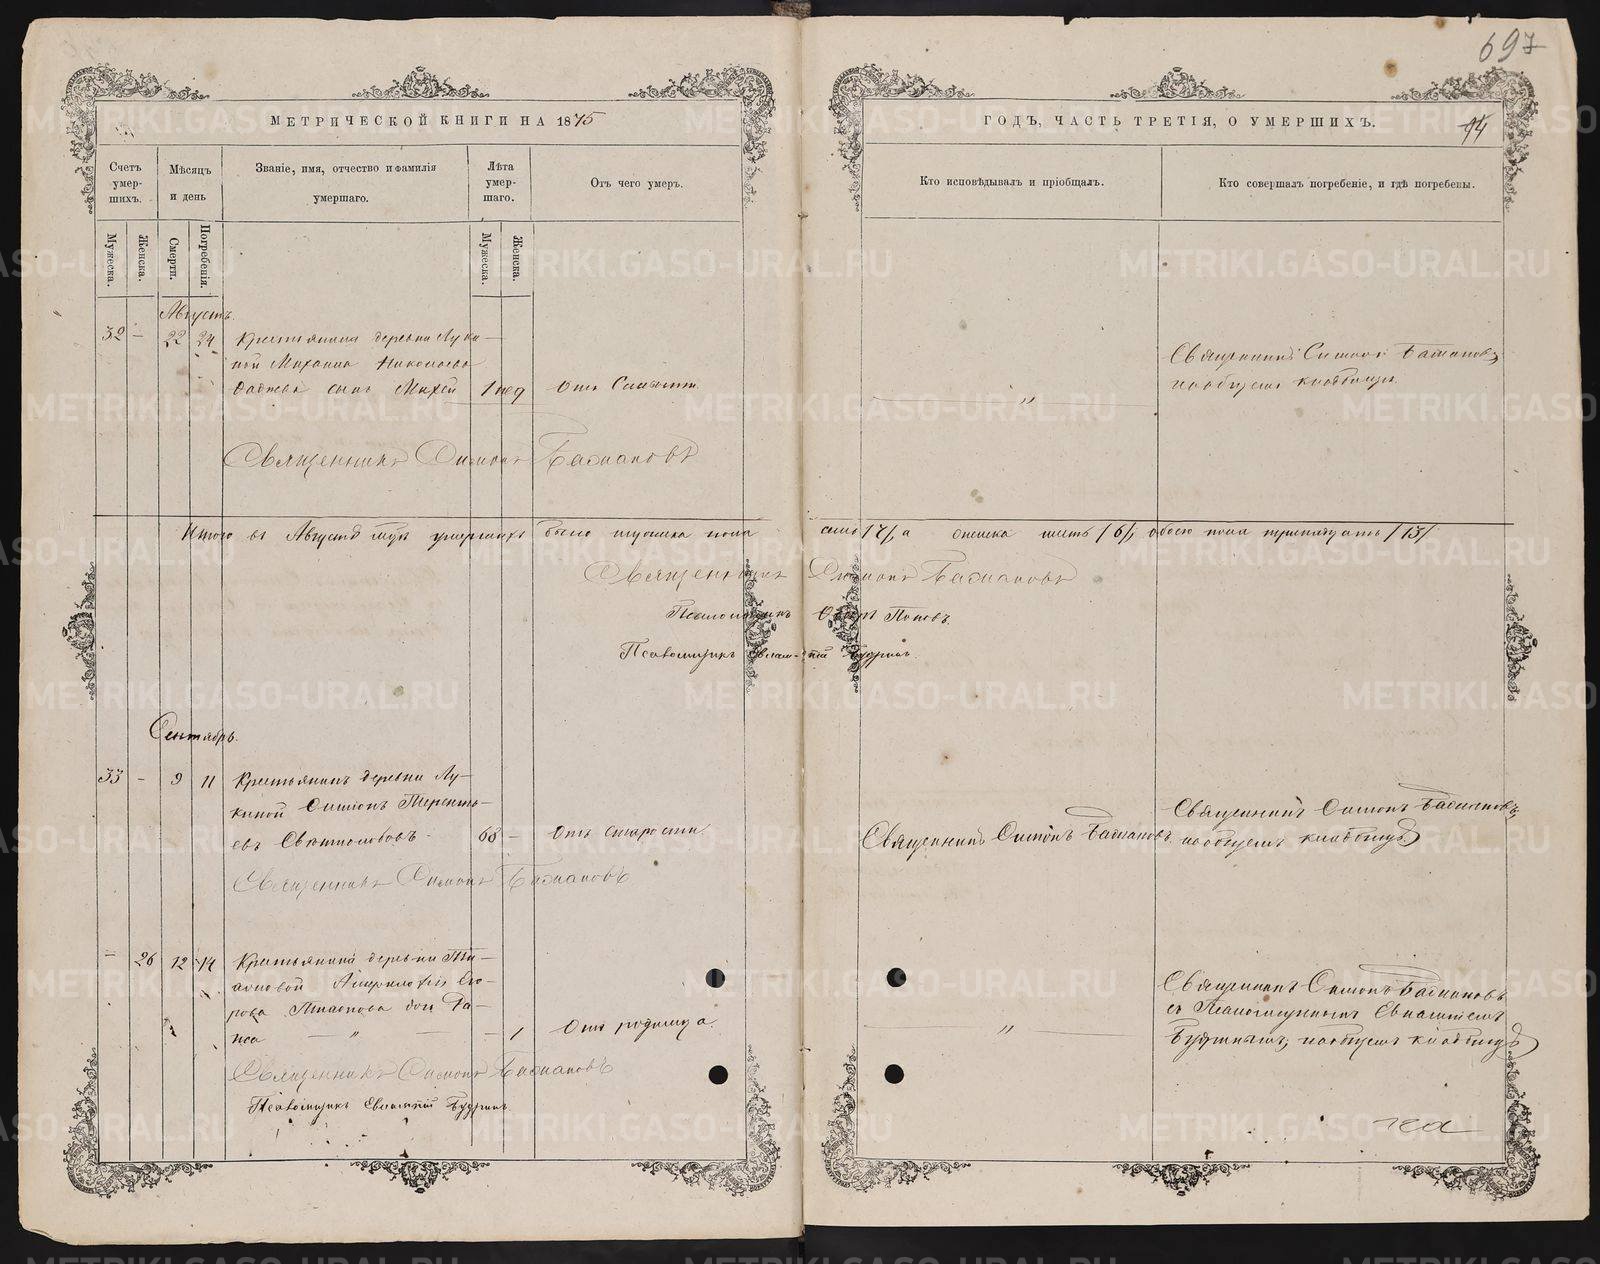 697
МЕТРИЧЕСКОЙ КНИГИ НА 1875
ГОДЪ, ЧАСТЬ ТРЕТІЯ, О УМЕРШИХЪ.
94
Счетъ умер- шихъ.
Мѣсяцъ и день
Званіе, имя, отчество и фамилія умершаго.
Лѣта умер- шаго.
Отъ чего умеръ.
Кто исповѣдывалъ и пріобщалъ.
Кто совершалъ погребеніе, и гдѣ погребены.
Мужеска.
Женска.
Смерти.
Погребенія.
Мужеска.
Женска.
Августъ.
32 — 22 24 Крестьянина деревни Луки—
ной Михаила Николаева
сынъ Михей 1 нед Отъ
Священникъ Симонъ Бажановъ,
на общемъ кладбищѣ.
Священникъ Симонъ Бажановъ
Итого въ Августѣ умершихъ было мужеска пола семь /7/, а женска шесть /6/, обоего пола тринадцать /13/.
Священникъ Симонъ Бажановъ
Псаломщикъ Поповъ.
Псаломщикъ Евлампій Будринъ.
Сентябрь.
33 — 9 11 Крестьянинъ деревни Лу—
киной Симонъ Теренть—
евъ 68 — Отъ старости.
Священникъ Симонъ Бажановъ
Священникъ Симонъ Бажановъ,
на общемъ кладбищѣ
Священникъ Симонъ Бажановъ
— 26 12 14 Крестьянина деревни
Его—
рова дочь Та—
иса — " — — 1 Отъ родимца.
— " —
Священникъ Симонъ Бажановъ
съ Псаломщикомъ Евлампіемъ
Будринымъ, на общемъ кладбищѣ
Священникъ Симонъ Бажановъ
Псаломщикъ Евлампій Будринъ.
METRIKI.GASO-URAL.RU